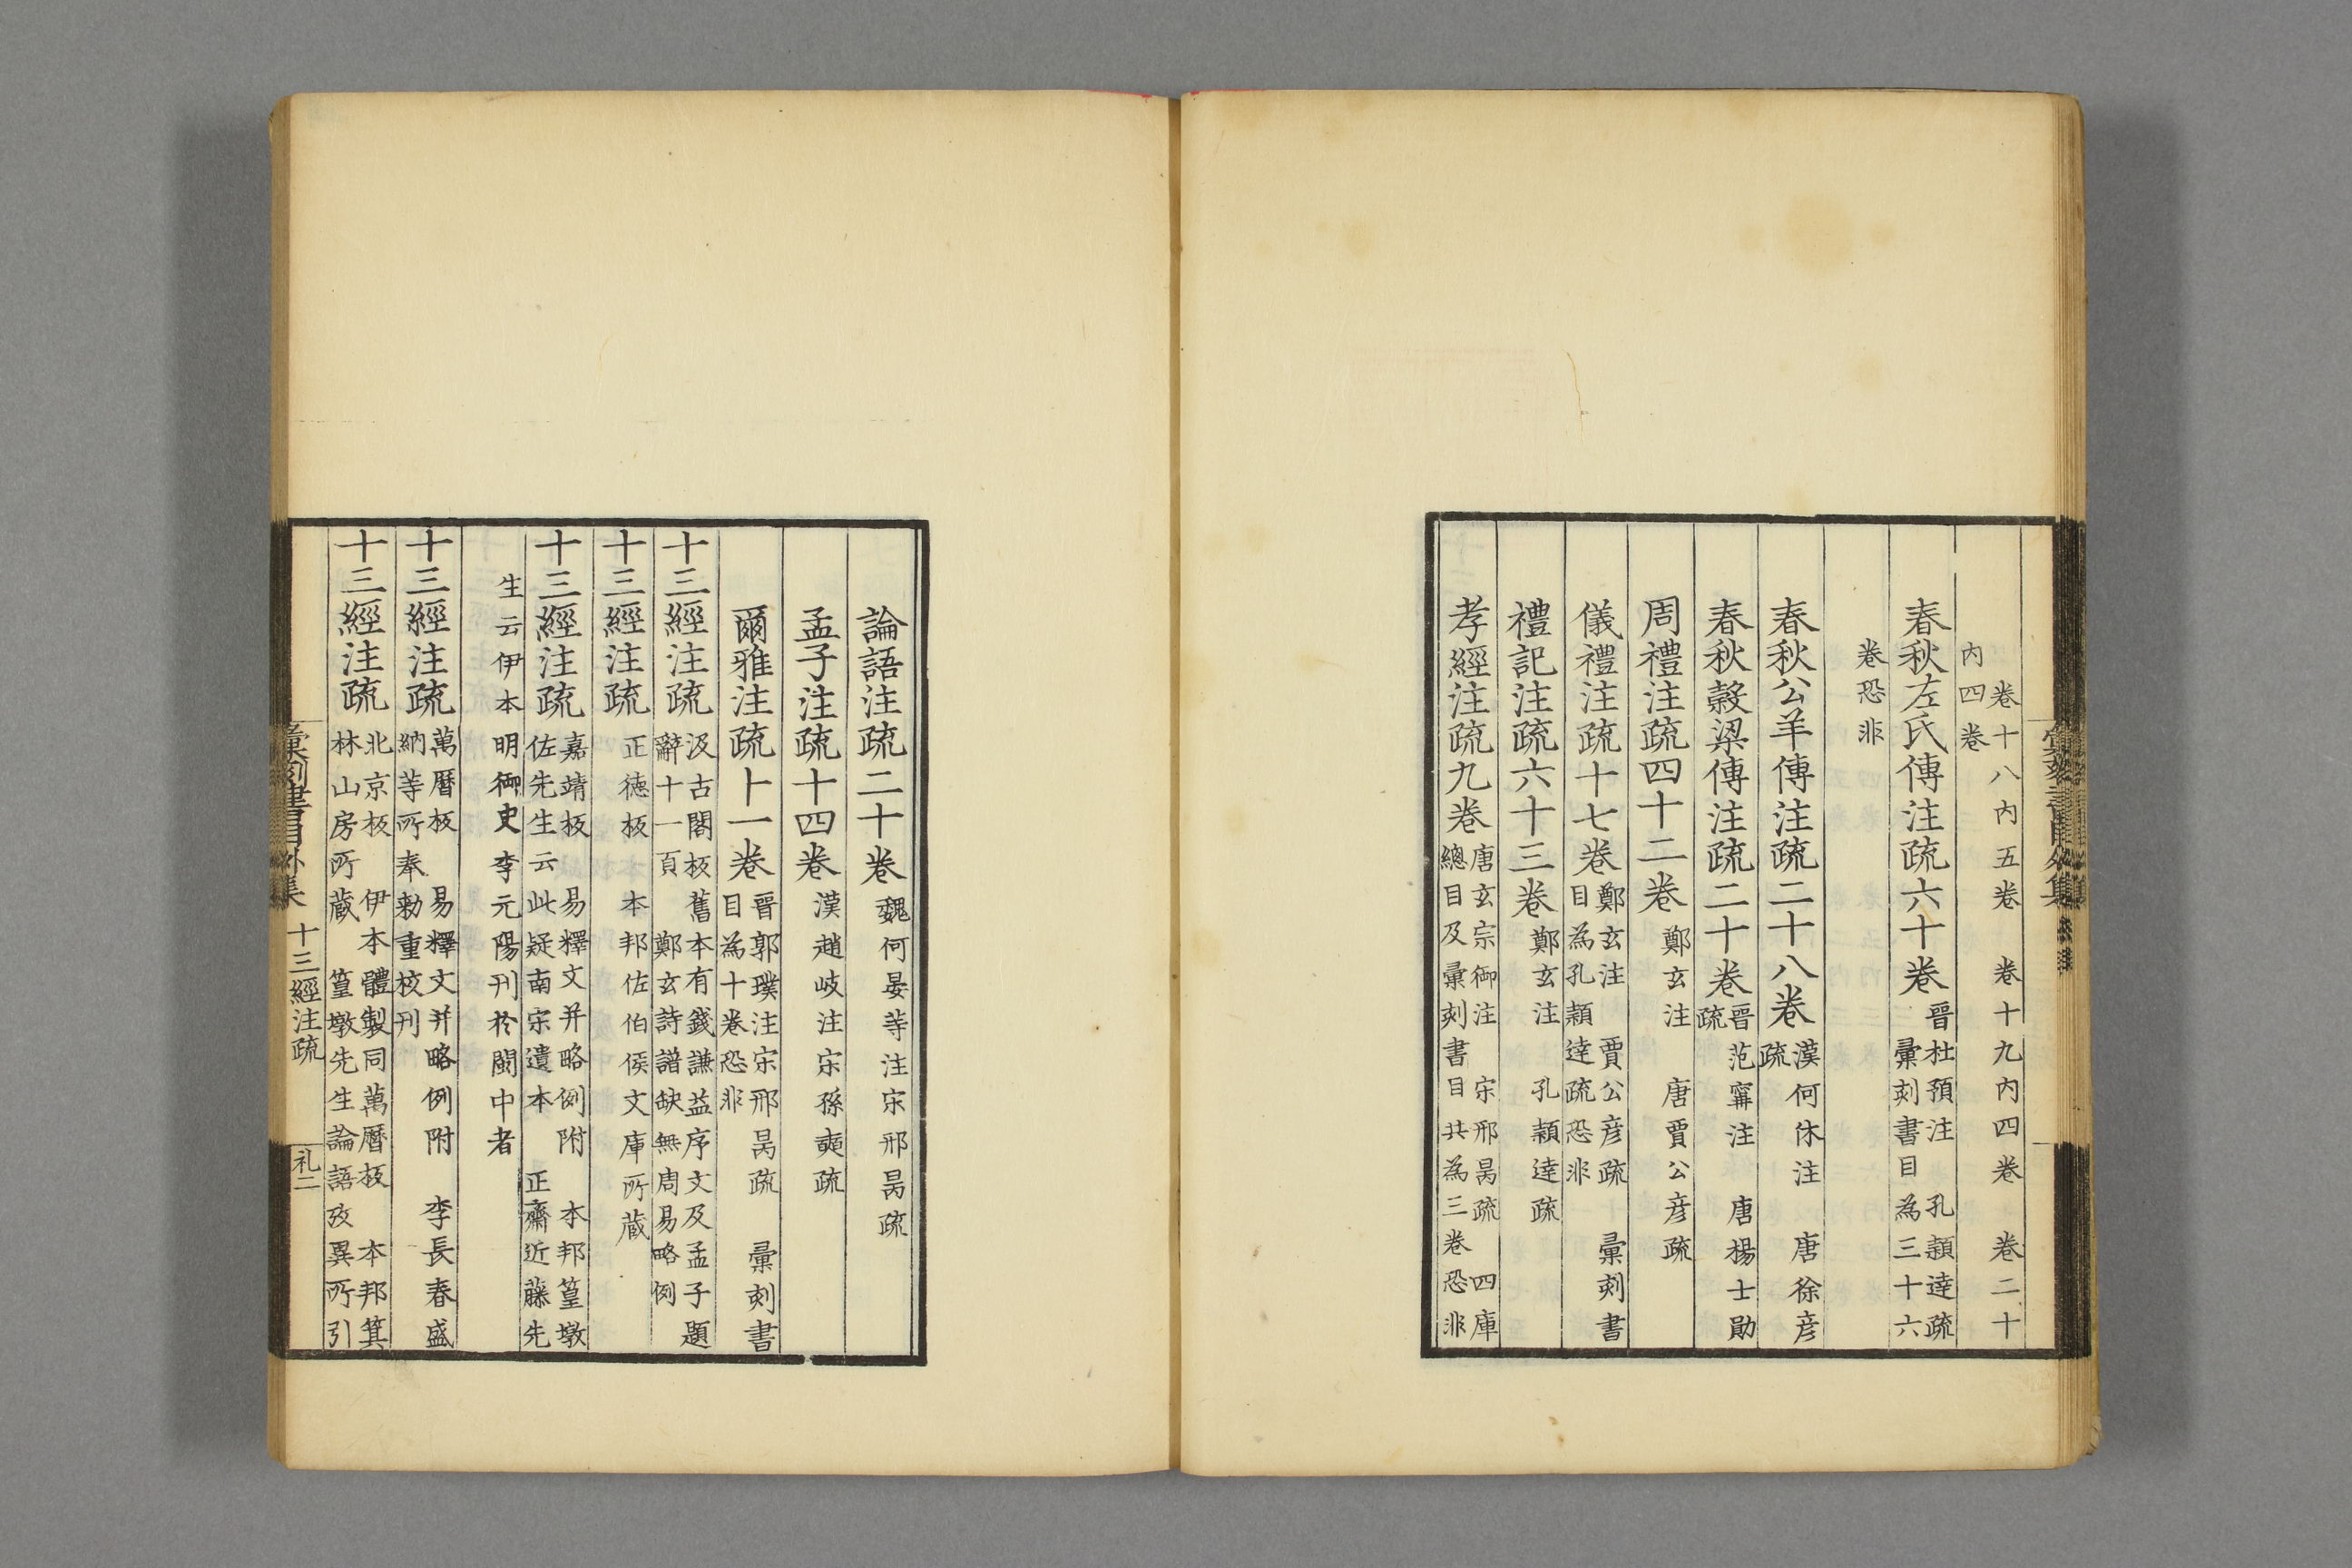 卷十八內五卷　卷十九內四卷　卷二十
內四卷
春秋左氏傳注疏六十卷
晉杜預注　孔穎達疏
彙刻書目為三十六
卷恐非
春秋公羊傳注疏二十八卷
漢何休注　唐徐彦
疏
春秋穀梁傳注疏二十卷
晉范甯注　唐楊士勛
疏
周禮注疏四十二卷　鄭玄注　唐賈公彦疏
儀禮注疏十七卷
鄭玄注　賈公彦疏　彙刻書
目為孔穎達疏恐非
禮記注疏六十三卷　鄭玄注　孔穎達疏
孝經注疏九卷
唐玄宗御注　宋邢昺疏　四庫
總目及彙刻書目共為三卷恐非
論語注疏二十卷　魏何晏等注宋邢昺疏
孟子注疏十四卷　漢趙岐注宋孫奭疏
爾雅注疏十一卷
晉郭璞注宋邢昺疏　彙刻書
目為十卷恐非
十三經注疏
汲古閣板舊本有錢謙益序文及孟子題
辭十一頁　鄭玄詩譜缺無周易略例
十三經注疏　正德板　本邦佐伯侯文庫所藏
十三經注疏
嘉靖板　易釋文并略例附　本邦篁墩
佐先生云此疑南宋遺本　正齋近藤先
生云伊本明御史李元陽刊於閩中者
十三經注疏
萬曆板　易釋文并略例附　李長春盛
納等所奉勅重校刊
十三經注疏
北京板　伊本體製同萬曆板　本邦箕
林山房所藏　篁墩先生論語攷異所引
彙刻書目外集　十三經注疏　礼二